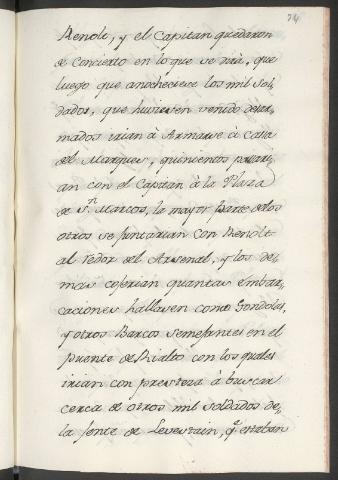 74
Renolt, y el Capitan quedaron
de concierto en lo que se dirà, que
luego que anocheciese los mil Sol-
dados, que huviesen venido desar-
mados irian à Armarse à casa
del Marques, quinientos pasari-
an con el Capitan à la Plaza
de Sn. Marcos, la mayor parte de los
otros se juntarian con Renolt
al rededor del Arsenal, y los de-
mas cojerian quantas embar-
caciones hallasen como Gondolas,
y otros Barcos semejantes en el
puente de Rialto con los quales
irian con presteza à buscar
cerca de otros mil soldados de
la jente de Levestain, q.e estaban